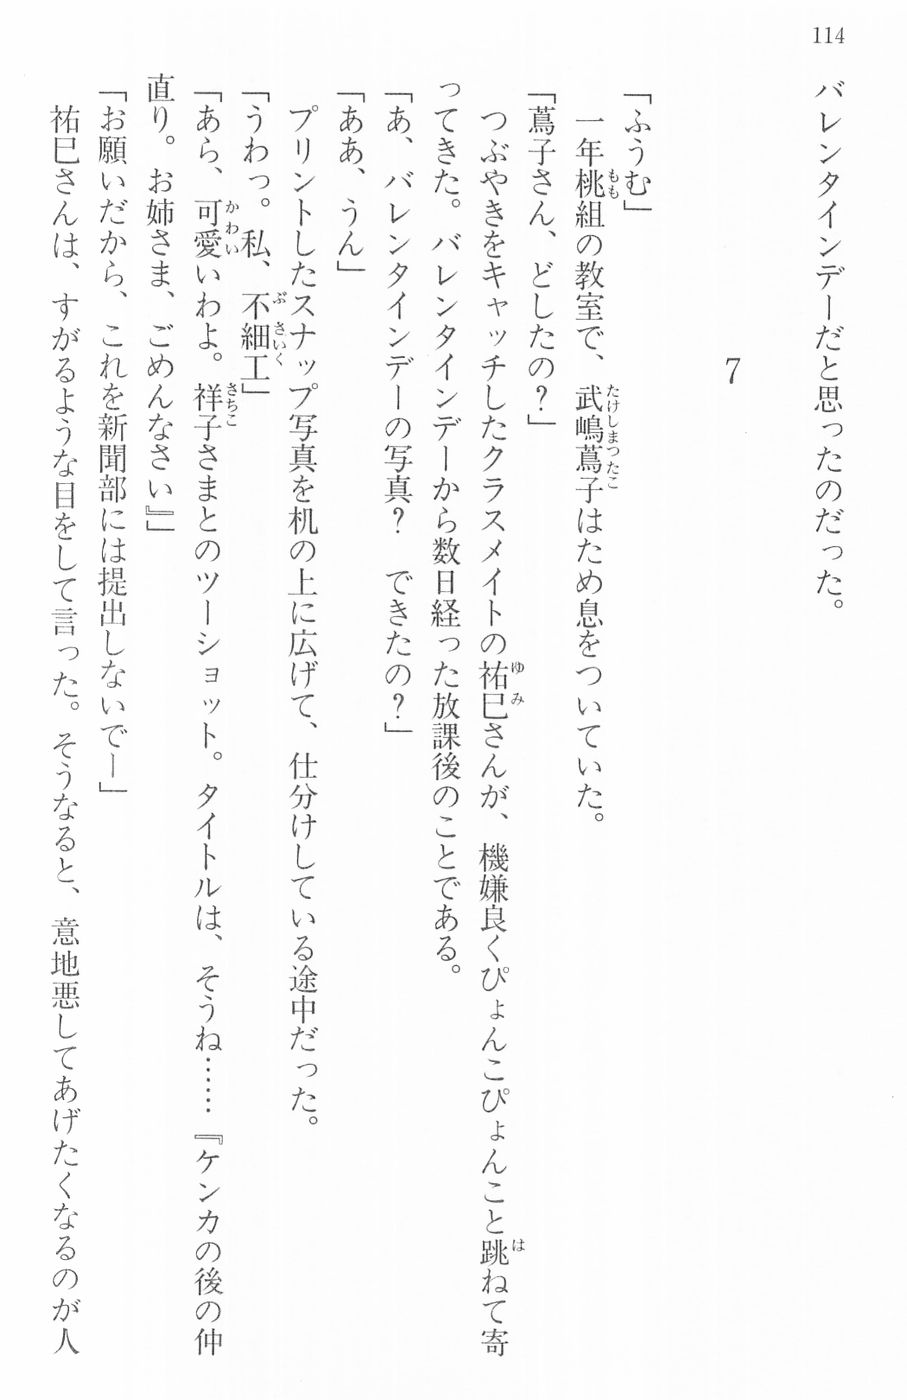 114
バレンタインデーだと思ったのだった。
7
「ふうむ」
一年桃組の教室で、武嶋蔦子はため息をついていた。
「蔦子さん、どしたの？」
つぶやきをキャッチしたクラスメイトの祐巳さんが、機嫌良くぴょんこぴょんこと跳ねて寄
ってきた。バレンタインデーから数日経った放課後のことである。
「あ、バレンタインデーの写真？　できたの？」
「ああ、うん」
プリントしたスナップ写真を机の上に広げて、仕分けしている途中だった。
「うわっ。私、不細工」
「あら、可愛いわよ。祥子さまとのツーショット。タイトルは、そうね……『ケンカの後の仲
直り。お姉さま、ごめんなさい』」
「お願いだから、これを新聞部には提出しないでー」
祐巳さんは、すがるような目をして言った。そうなると、意地悪してあげたくなるのが人